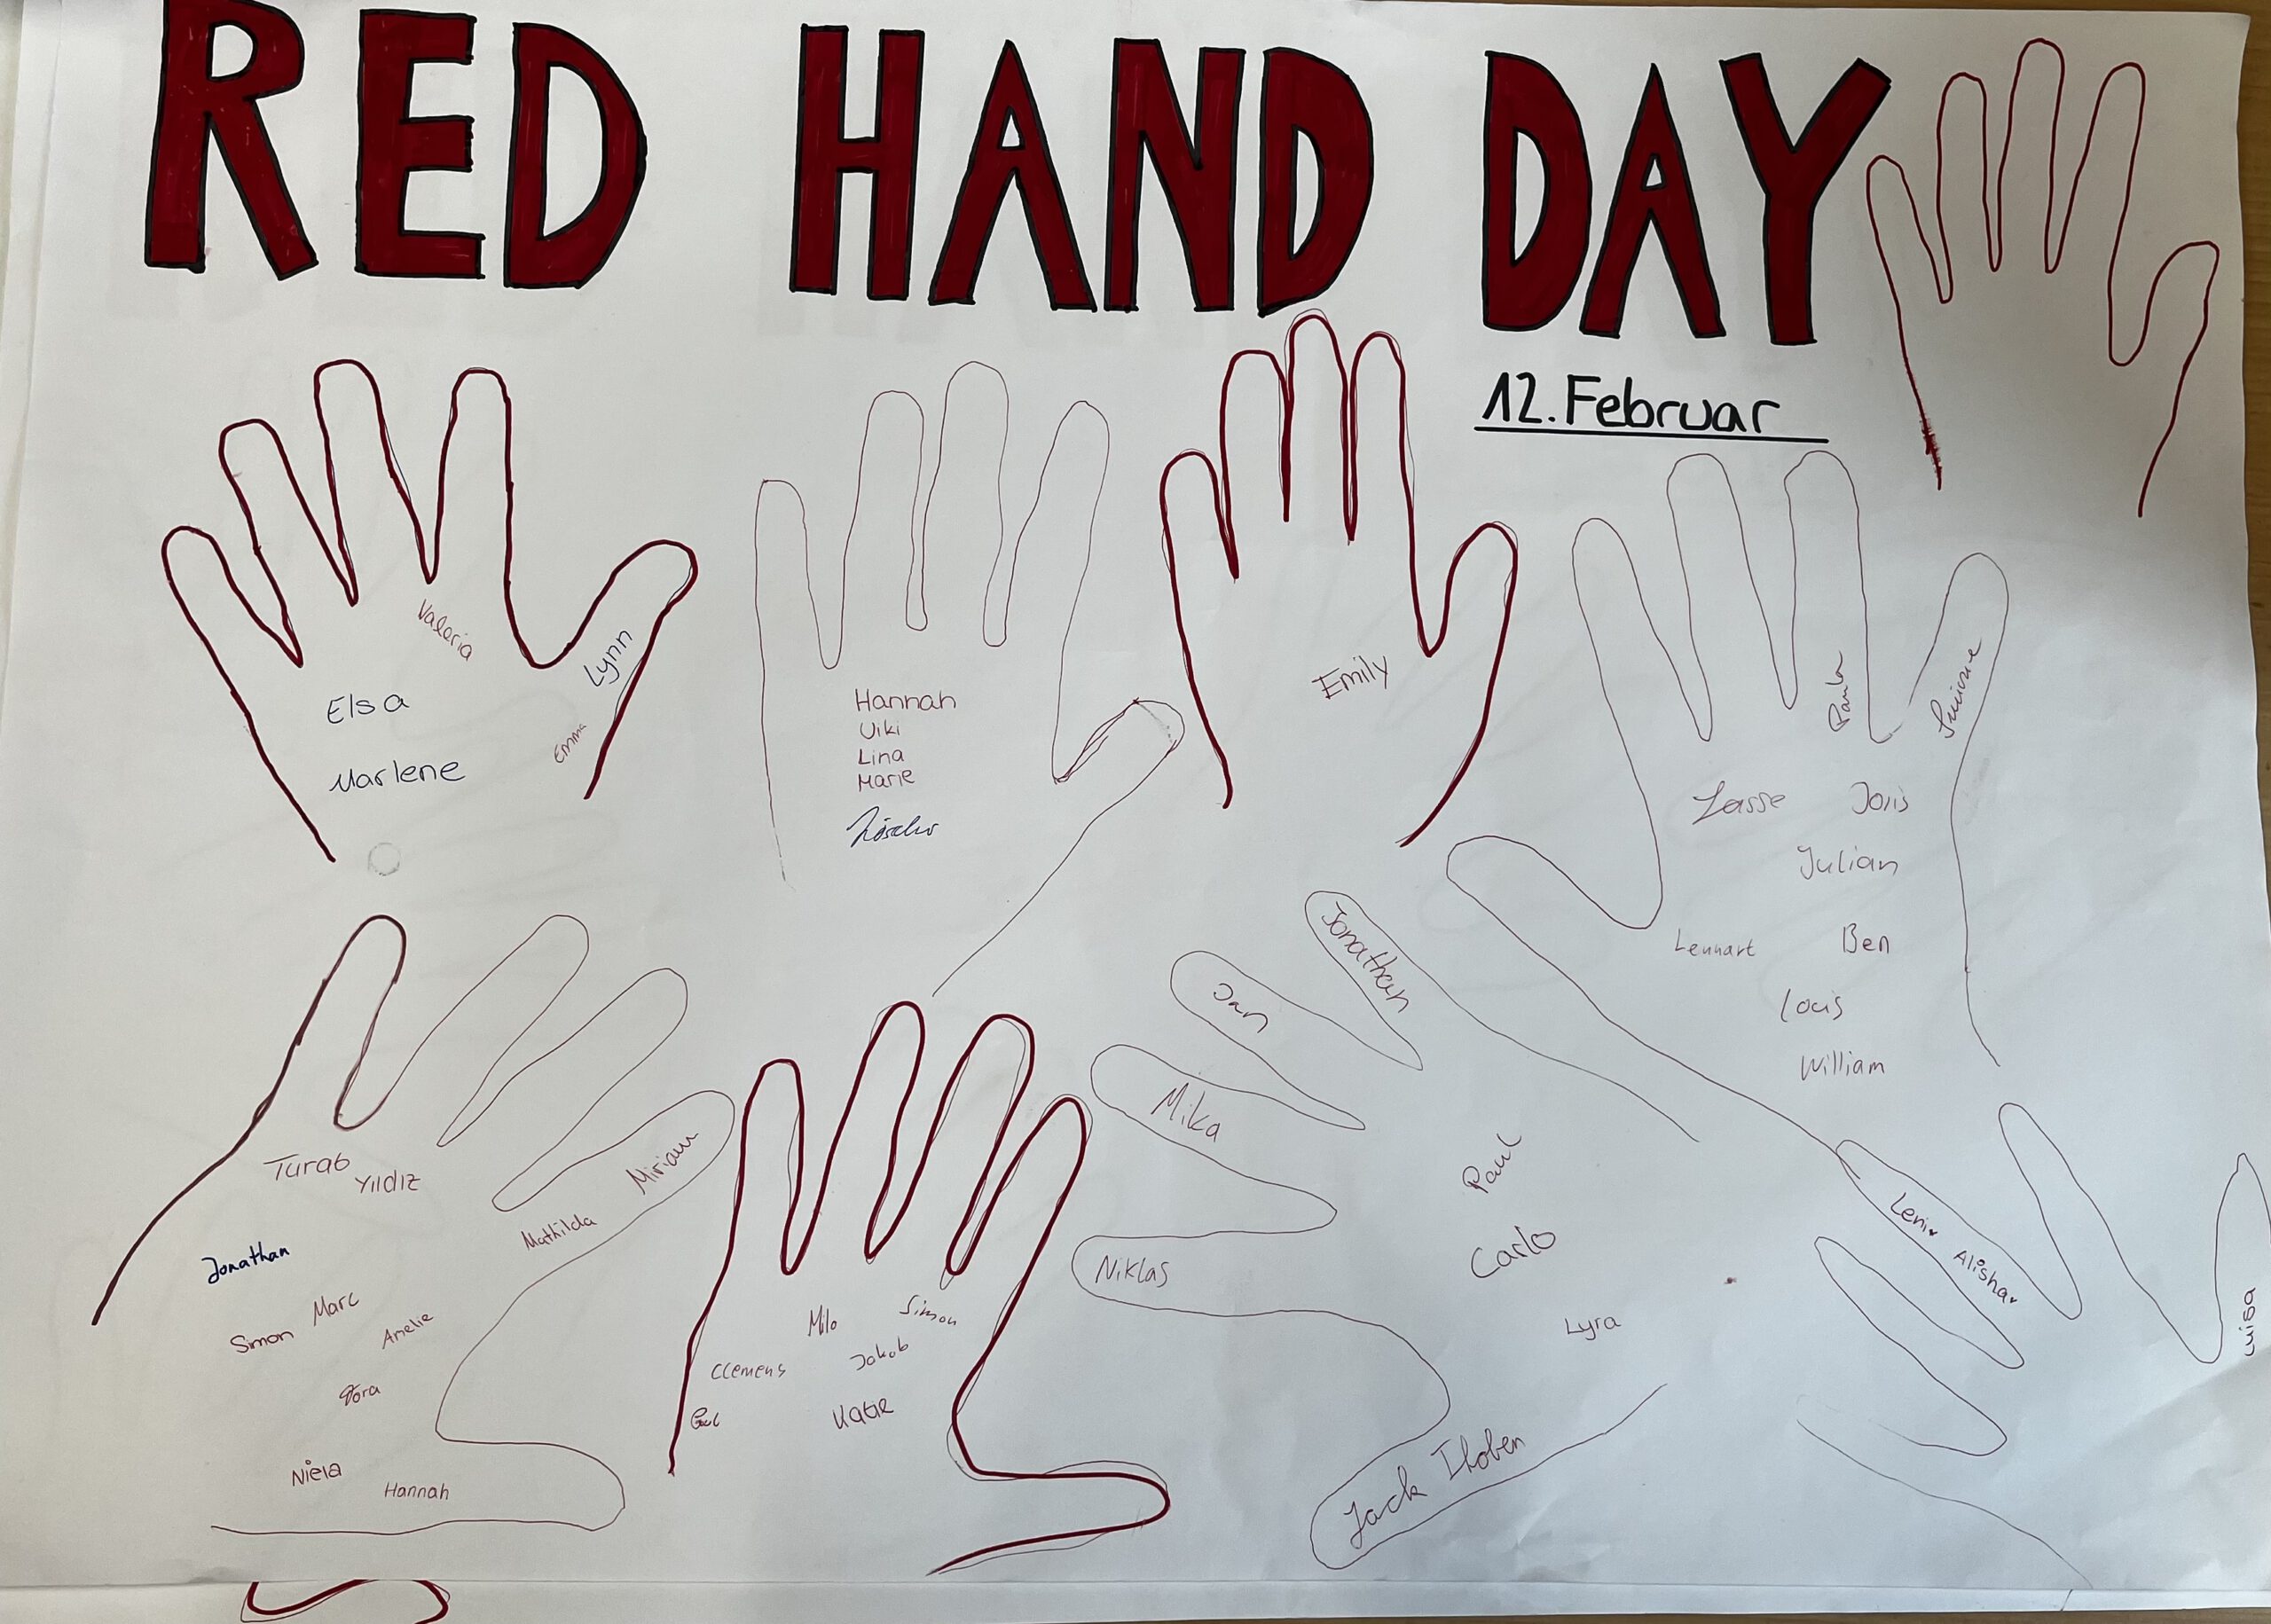 RED HAND DAY
12. Februar
Valeria
Lynn
Elsa
Emma
Marlene
Hannah
Viki
Lina
Marie
Emily
Lasse
Joris
Julian
Lennart
Ben
Louis
William
Turab
Yildiz
Miriam
Mathilda
Jonathan
Marc
Simon
Amelie
Niela
Hannah
Milo
Simon
Clemens
Jakob
Katie
Jonathan
Jan
Mika
Niklas
Paul
Carlo
Lyra
Jack Thoben
Leni
Alisha
Luisa